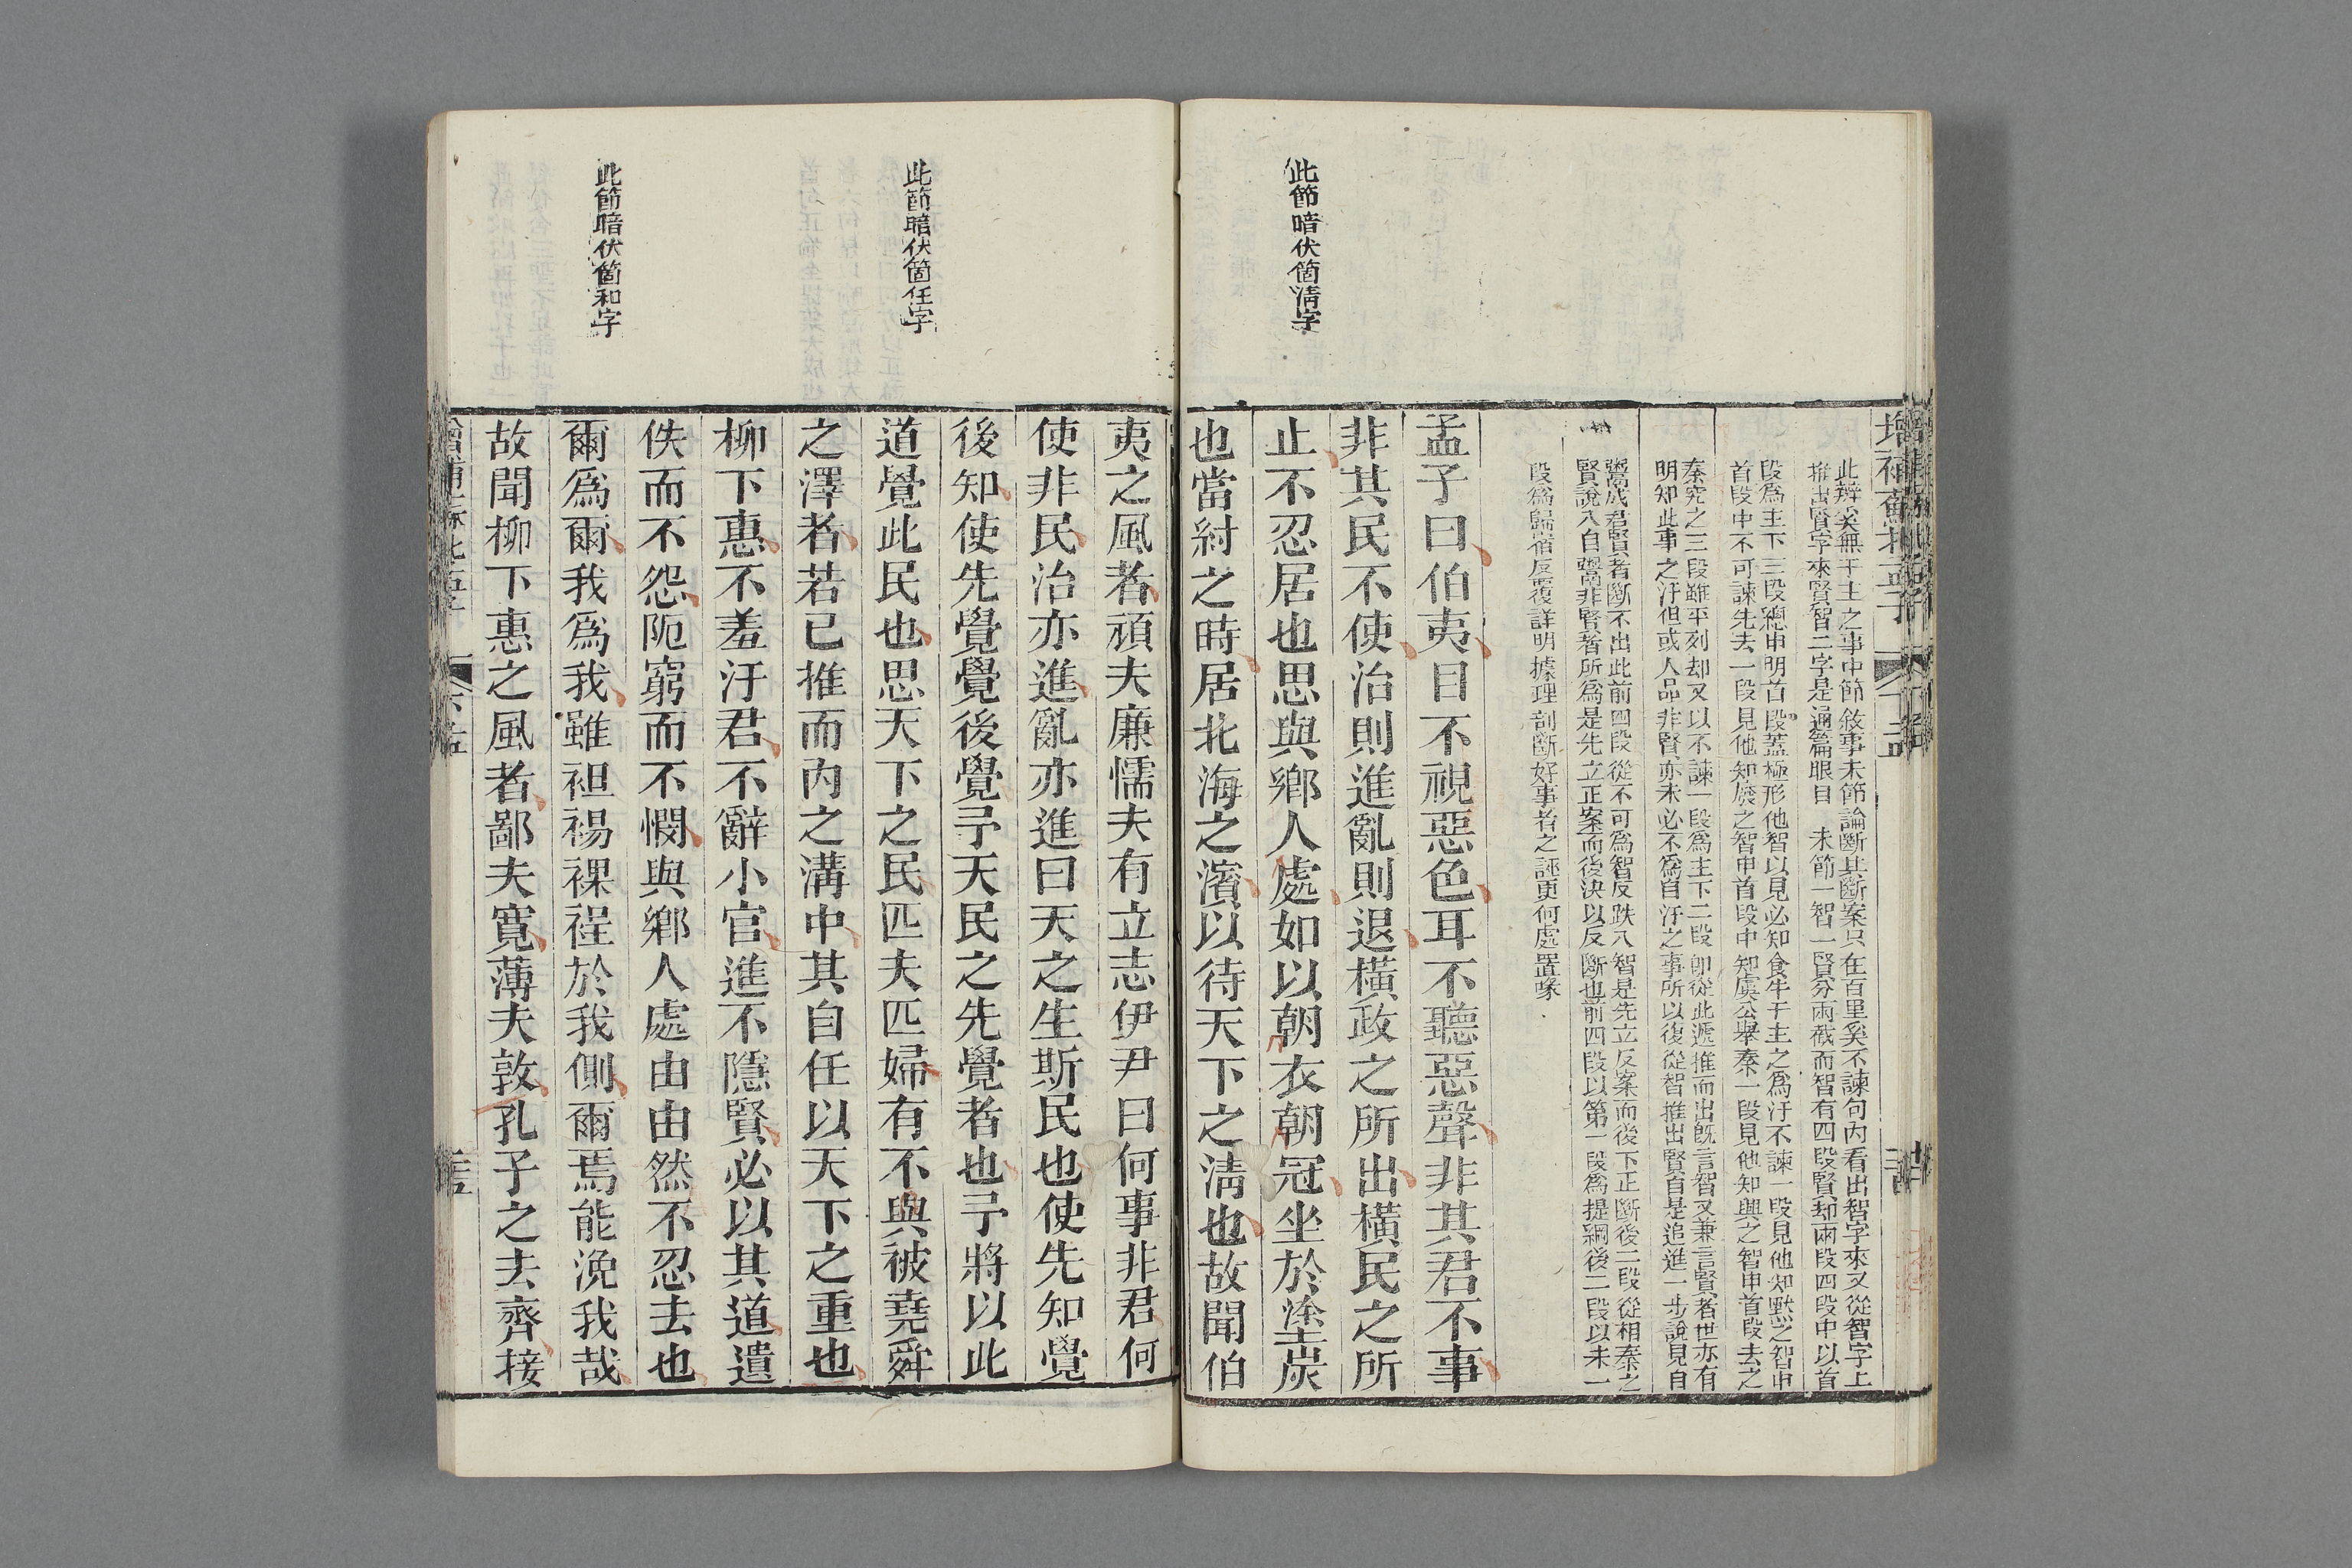 此節暗伏箇清字
此辨奚無干主之事中節敘事末節論斷其斷案只在百里奚不諫句內看出智字來又從智字上
推出賢字來賢智二字是通篇眼目　末節一智一賢分兩截而智有四段賢却兩段四段中以首
段爲主下三段總申明首段蓋極形他智以見必知食牛干主之爲汙不諫一段見他知默之智申
首段中不可諫先去一段見他知廢之智申首段中知虞公舉秦一段見他知興之智申首段去之
秦究之三段雖平列却又以不諫一段爲主下二段卽從此遞推而出旣言智又兼言賢者世亦有
明知此事之汙但或人品非賢亦未必不爲自汙之事所以復從智推出賢自是追進一步說見自
鬻成君賢者斷不出此前四段從不可爲智反跌入智是先立反案而後下正斷後二段從相秦之
賢說入自鬻非賢者所爲是先立正案而後決以反斷也前四段以第一段爲提綱後二段以末一
段爲歸宿反覆詳明據理剖斷好事者之誣更何處置喙
孟子曰伯夷目不視惡色耳不聽惡聲非其君不事
非其民不使治則進亂則退橫政之所出橫民之所
止不忍居也思與鄉人處如以朝衣朝冠坐於塗炭
也當紂之時居北海之濱以待天下之清也故聞伯
此節暗伏箇任字
此節暗伏箇和字
夷之風者頑夫廉懦夫有立志伊尹曰何事非君何
使非民治亦進亂亦進曰天之生斯民也使先知覺
後知使先覺覺後覺予天民之先覺者也予將以此
道覺此民也思天下之民匹夫匹婦有不與被堯舜
之澤者若已推而內之溝中其自任以天下之重也
柳下惠不羞汙君不辭小官進不隱賢必以其道遺
佚而不怨阨窮而不憫與鄉人處由由然不忍去也
爾爲爾我爲我雖袒裼裸裎於我側爾焉能浼我哉
故聞柳下惠之風者鄙夫寬薄夫敦孔子之去齊接